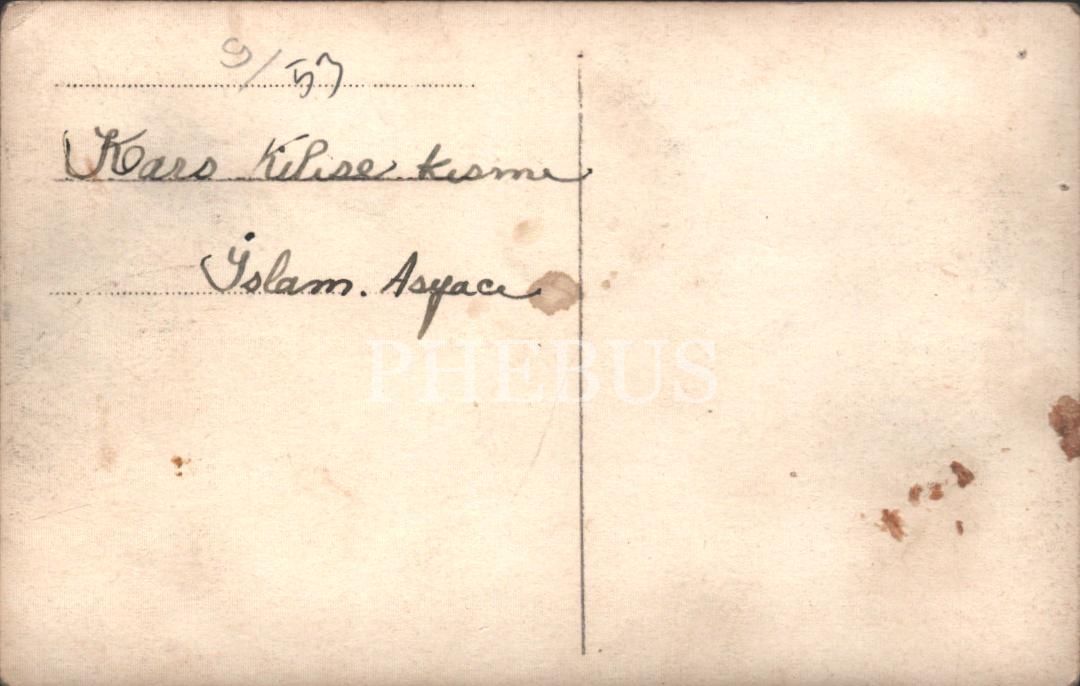 9/57
Kars Kilise kısmı
İslam. Asyacı
PHEBUS